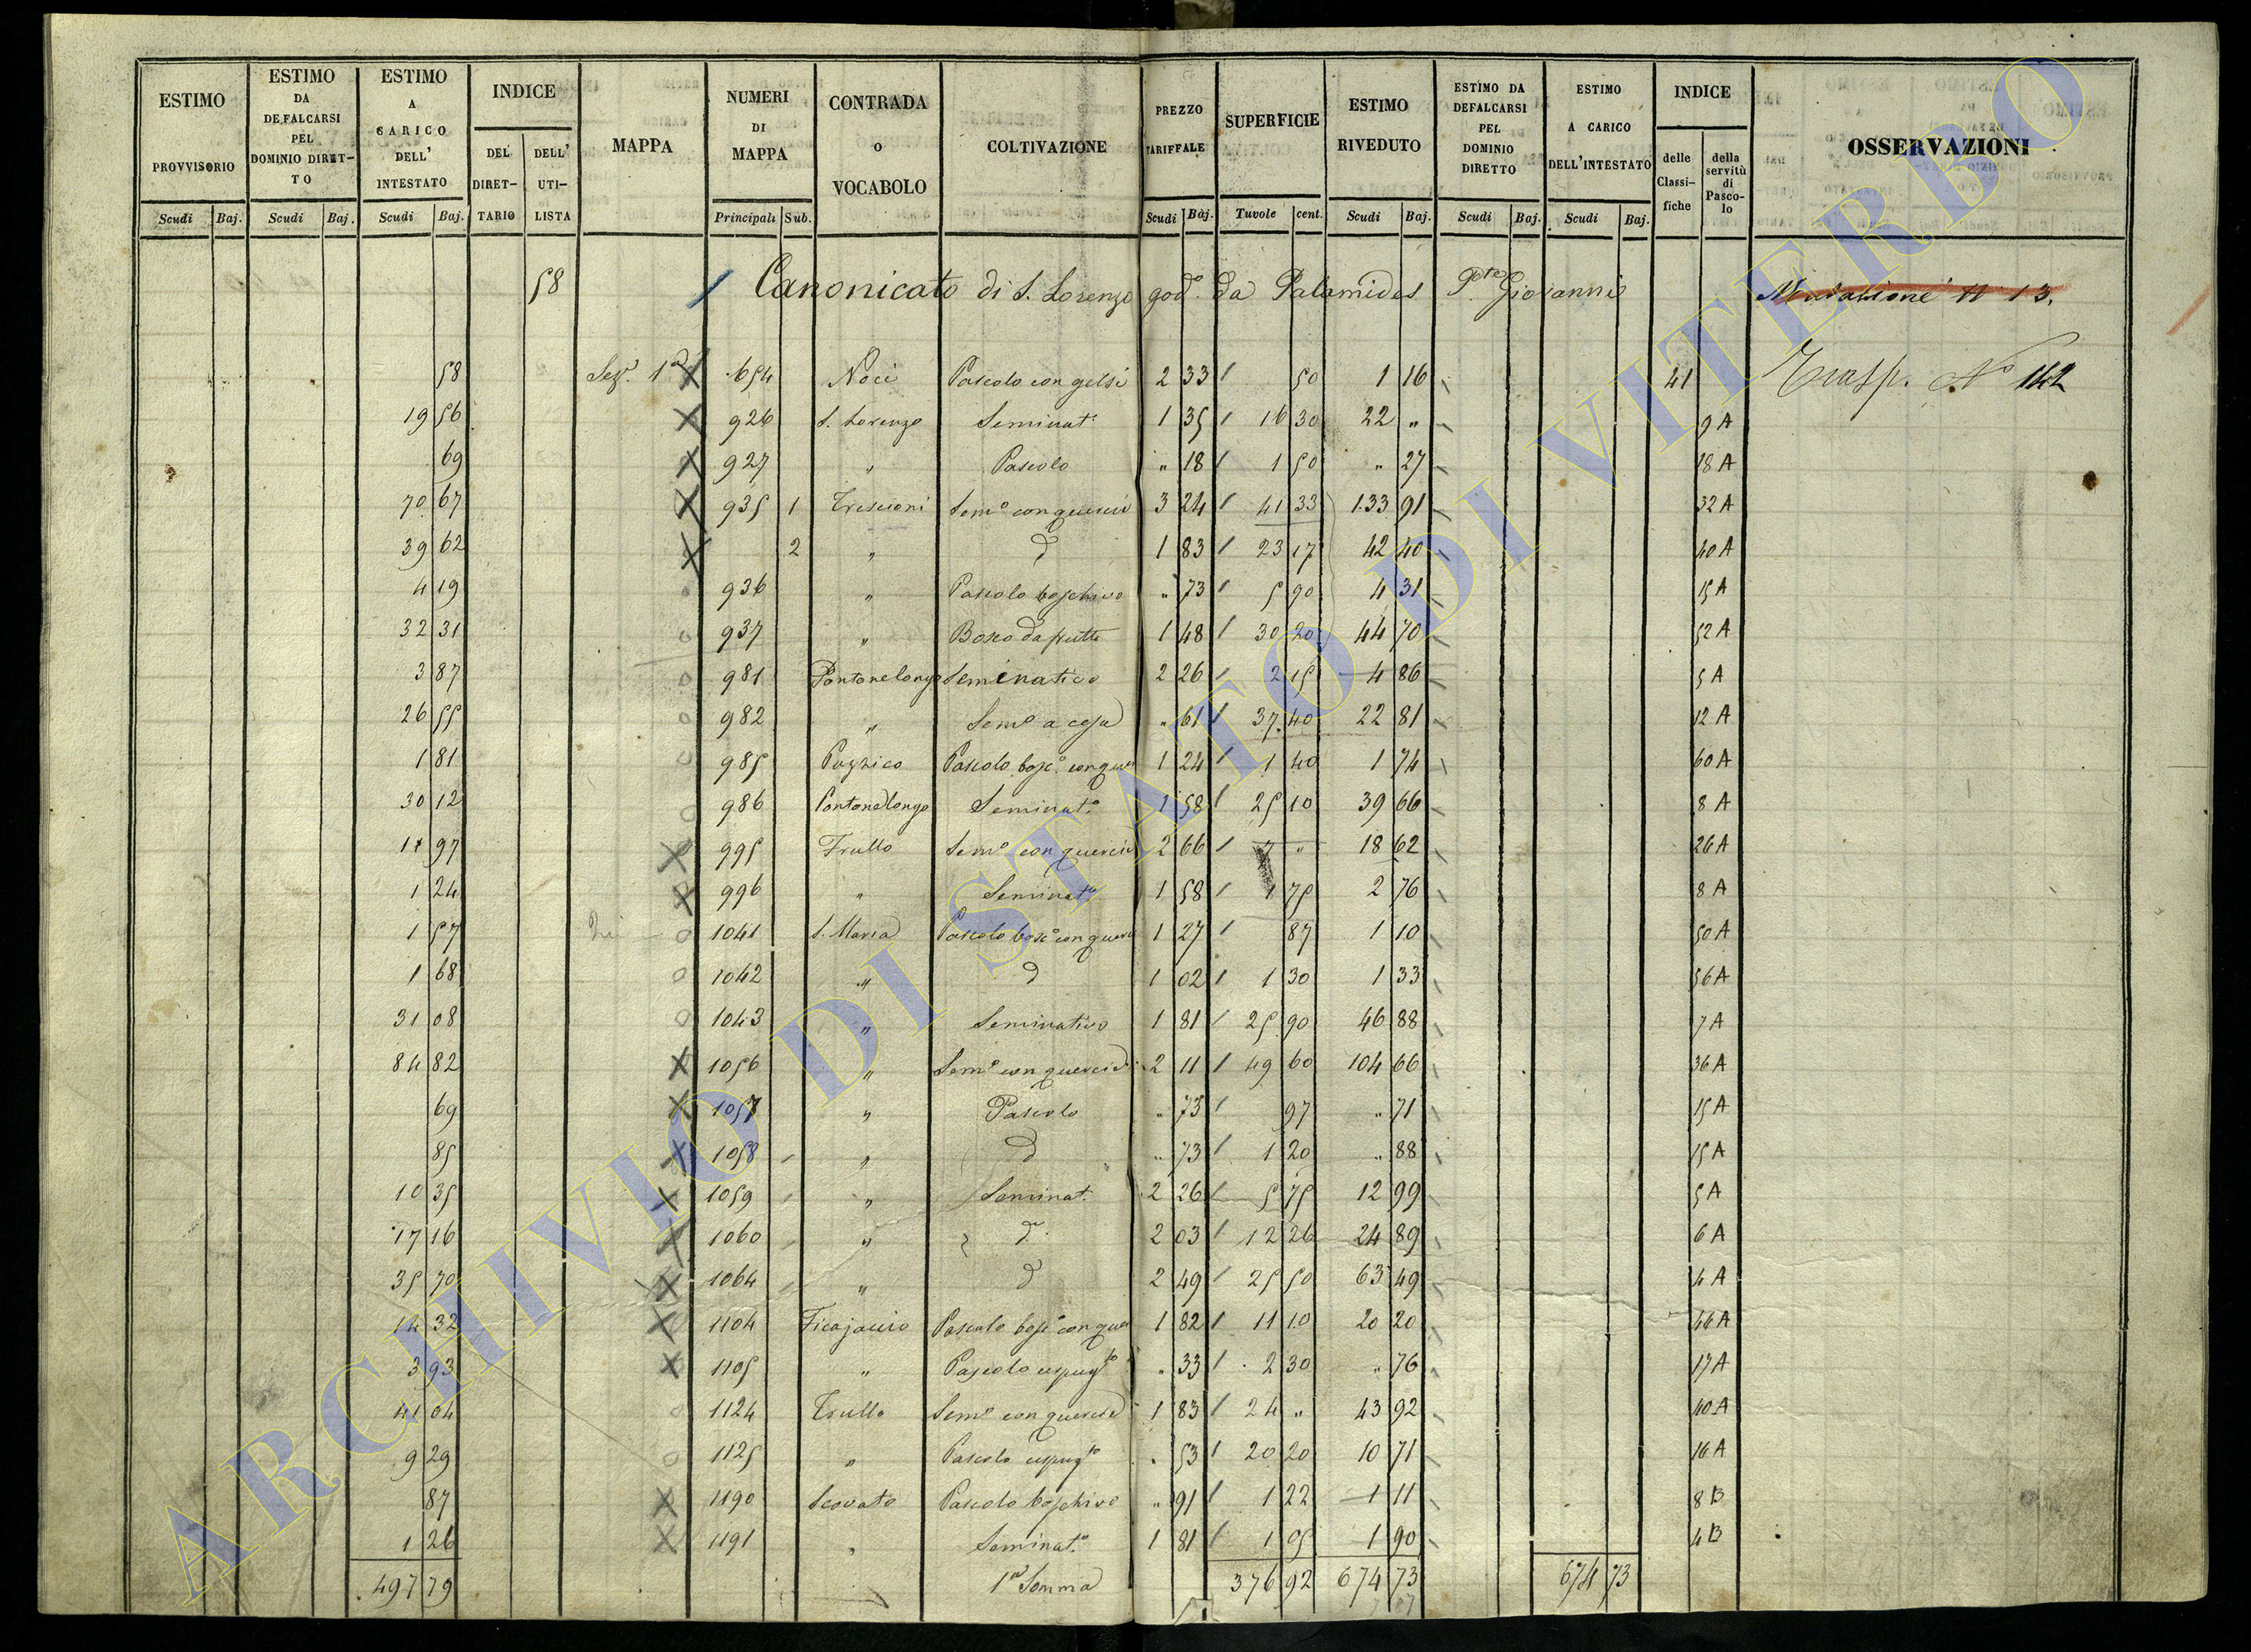 ESTIMO PROVVISORIO Scudi Baj.
ESTIMO DA DEFALCARSI PEL DOMINIO DIRET-TO Scudi Baj.
ESTIMO A CARICO DELL' INTESTATO Scudi Baj.
INDICE DEL DIRET-TARIO DELL' UTI-LISTA
MAPPA
NUMERI DI MAPPA Principali Sub.
CONTRADA O VOCABOLO
COLTIVAZIONE
PREZZO TARIFFALE Scudi Baj.
SUPERFICIE Tavole cent.
ESTIMO RIVEDUTO Scudi Baj.
ESTIMO DA DEFALCARSI PEL DOMINIO DIRETTO Scudi Baj.
ESTIMO A CARICO DELL'INTESTATO Scudi Baj.
INDICE delle Classi-fiche della servitù di Pasco-lo
OSSERVAZIONI
58 Canonicato di S. Lorenzo god. da Palamides Pte Giovanni Mutazione N 13.
58 Sez. 1a 654 Noci Pascolo con gelsi 2 33 50 1 16 41 Trasp. No 142
19 56 926 S. Lorenzo Seminato 1 35 16 30 22 " 9 A
69 927 " Pascolo " 18 1 50 " 27 18 A
70 67 935 1 Crescioni Semo con querci 3 24 41 33 133 91 32 A
39 62 2 " d 1 83 23 17 42 40 40 A
4 19 936 " Pascolo boschivo " 73 5 90 4 31 15 A
32 31 937 " Bosco da frutto 1 48 30 20 44 70 52 A
3 87 981 Pontonelongo Seminativo 2 26 2 15 4 86 5 A
26 55 982 " Semo a cesa " 61 37 40 22 81 12 A
1 81 985 Pozzico Pascolo bosco con que 1 24 1 40 1 74 60 A
30 12 986 Pontonelongo Seminato 1 58 25 10 39 66 8 A
97 995 Trullo Semo con querci 2 66 7 " 18 62 26 A
1 24 996 " Seminato 1 58 1 75 2 76 8 A
1 57 1041 S. Maria Pascolo bosco con querci 1 27 87 1 10 50 A
1 68 1042 " d 1 02 1 30 1 33 56 A
31 08 1043 " Seminativo 1 81 25 90 46 88 7 A
84 82 1056 " Semo con querci 2 11 49 60 104 66 36 A
69 1057 " Pascolo " 73 97 " 71 15 A
85 1058 " d " 73 1 20 " 88 15 A
10 35 1059 " Seminat. 2 26 5 75 12 99 5 A
17 16 1060 " d 2 03 12 26 24 89 6 A
35 70 1064 " d 2 49 25 50 63 49 4 A
14 32 1104 Ficajaccio Pascolo bosco con que 1 82 11 10 20 20 44 A
3 93 1105 " Pascolo cespugto " 33 2 30 " 76 17 A
41 04 1124 Trullo Semo con querci 1 83 24 " 43 92 40 A
9 29 1125 " Pascolo cespugto " 53 20 20 10 71 16 A
87 1190 Scovato Pascolo boschivo " 91 1 22 1 11 8 B
1 26 1191 " Seminato 1 81 1 05 1 90 4 B
497 79 1a Somma 376 92 674 73 674 73
ARCHIVIO DI STATO DI VITERBO